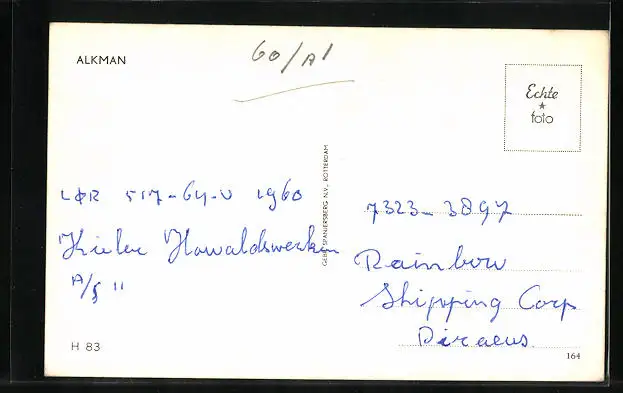 ALKMAN
60/A1
Echte
foto
GEBR. SPANJERSBERG N.V., ROTTERDAM
517-64-V 1960
Kieler Howaldswerken
A/S 11
7323-3897
Rainbow
Shipping Corp
Piraeus.
H 83
164